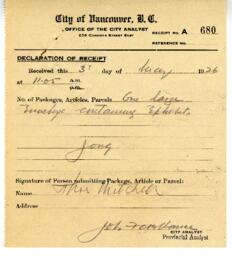 City of Vancouver, B. C.
OFFICE OF THE CITY ANALYST
236 CORDOVA STREET EAST
RECEIPT No. A 680
REFERENCE No.
DECLARATION OF RECEIPT
Received this 3rd day of May 1926
at 11.05 a.m. p.m.
No. of Packages, Articles, Parcels One large
Envelope containing Exhibits
Jong
Signature of Person submitting Package, Article or Parcel:
Name Mitchell
Address
CITY ANALYST
Provincial Analyst